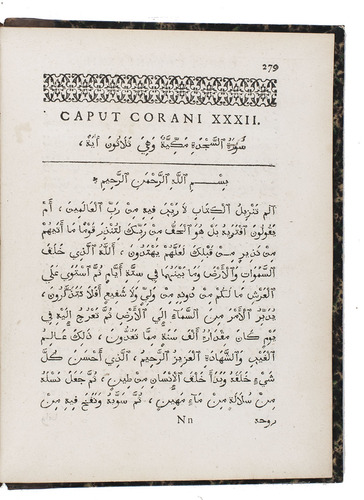 279
CAPUT CORANI XXXII.
سُورَةُ السَّجْدَةِ مَكِّيَّةٌ وَهِيَ ثَلَاثُونَ آيَةً ،
بِسْــمِ اللَّهِ الرَّحْمَنِ الرَّحِيمِ
الم تَنْزِيلُ الْكِتَابِ لَا رَيْبَ فِيهِ مِنْ رَبِّ الْعَالَمِينَ ، أَمْ
يَقُولُونَ افْتَرَيهُ بَلْ هُوَ الْحَقُّ مِنْ رَبِّكَ لِتُنْذِرَ قَوْمًا مَا أَتَيهُمْ
مِنْ نَذِيرٍ مِنْ قَبْلِكَ لَعَلَّهُمْ يَهْتَدُونَ ، اللَّهُ الَّذِي خَلَقَ
السَّمَوَاتِ وَالْأَرْضَ وَمَا بَيْنَهُمَا فِي سِتَّةِ أَيَّامٍ ثُمَّ اسْتَوَى عَلَى
الْعَرْشِ مَا لَكُمْ مِنْ دُونِهِ مِنْ وَلِيٍّ وَلَا شَفِيعٍ أَفَلَا تَتَذَكَّرُونَ ،
يُدَبِّرُ الْأَمْرَ مِنَ السَّمَاءِ إِلَى الْأَرْضِ ثُمَّ يَعْرُجُ إِلَيْهِ فِي
يَوْمٍ كَانَ مِقْدَارُهُ أَلْفَ سَنَةٍ مِمَّا تَعُدُّونَ ، ذَلِكَ عَالِمُ
الْغَيْبِ وَالشَّهَادَةِ الْعَزِيزُ الرَّحِيمُ ، الَّذِي أَحْسَنَ كُلَّ
شَيْءٍ خَلَقَهُ وَبَدَأَ خَلْقَ الْإِنْسَانِ مِنْ طِينٍ ، ثُمَّ جَعَلَ نَسْلَهُ
مِنْ سُلَالَةٍ مِنْ مَاءٍ مَهِينٍ ، ثُمَّ سَوَّيهُ وَنَفَخَ فِيهِ مِنْ
Nn روحه